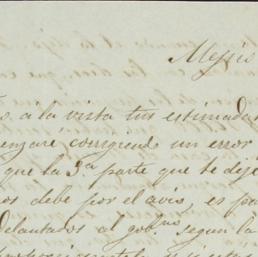 Mejis
s. a la vista tus estimada
enzaré corrigiendo un error
que la 3.ª parte que te dije
os debe por el avis, es pa
delantaros al gob.no segun la